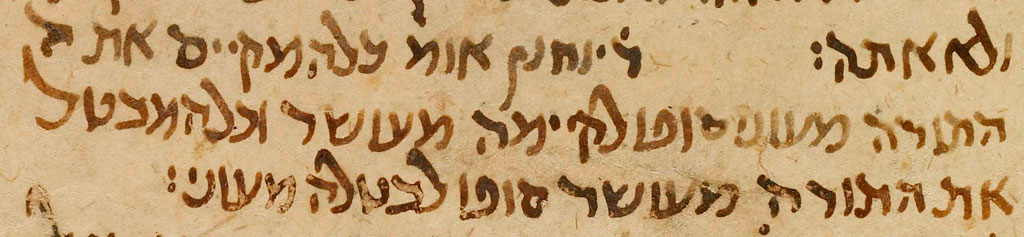 ולא אתה: ר' יונתן אומ' כל המקיים את
התורה מעוני סופו לקיימה מעושר וכל המבטל
את התורה מעושר סופו לבטלה מעוני: